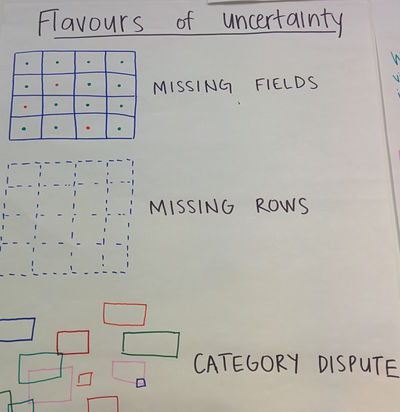 Flavours of uncertainty
MISSING FIELDS
MISSING ROWS
CATEGORY DISPUTE